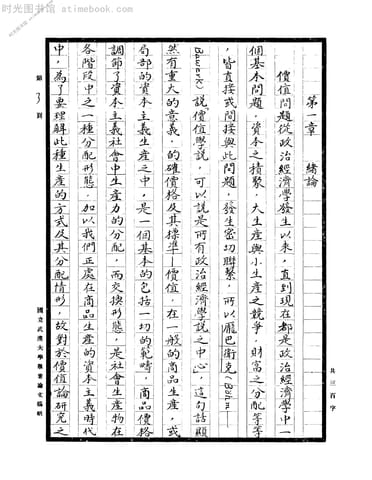 时光图书馆 atimebook.com
第一章 緒論
價值問題從政治經濟學發生以來，直到現在都是政治經濟學中一
個基本問題，資本之積聚，大生產與小生產之競爭，財富之分配等等
，皆直接或間接與此問題，發生密切聯繫，所以龐巴衛克（Bohm—
Bawerk）說價值學說，可以說是所有政治經濟學說之中心，這句話顯
然有重大的意義，的確價格及其標準—價值，在一般的商品生產，或
局部的資本主義生產之中，是一個基本的包括一切的範疇，商品價格
調節了資本主義社會中生產力的分配，而交換形態，是社會生產物在
各階段中之一種分配形態，加以我們正處在商品生產的資本主義時代
中，為了要理解此種生產的方式及其分配情形，故對於價值論研究之
共三百字
第 3 頁
國立武漢大學畢業論文稿紙